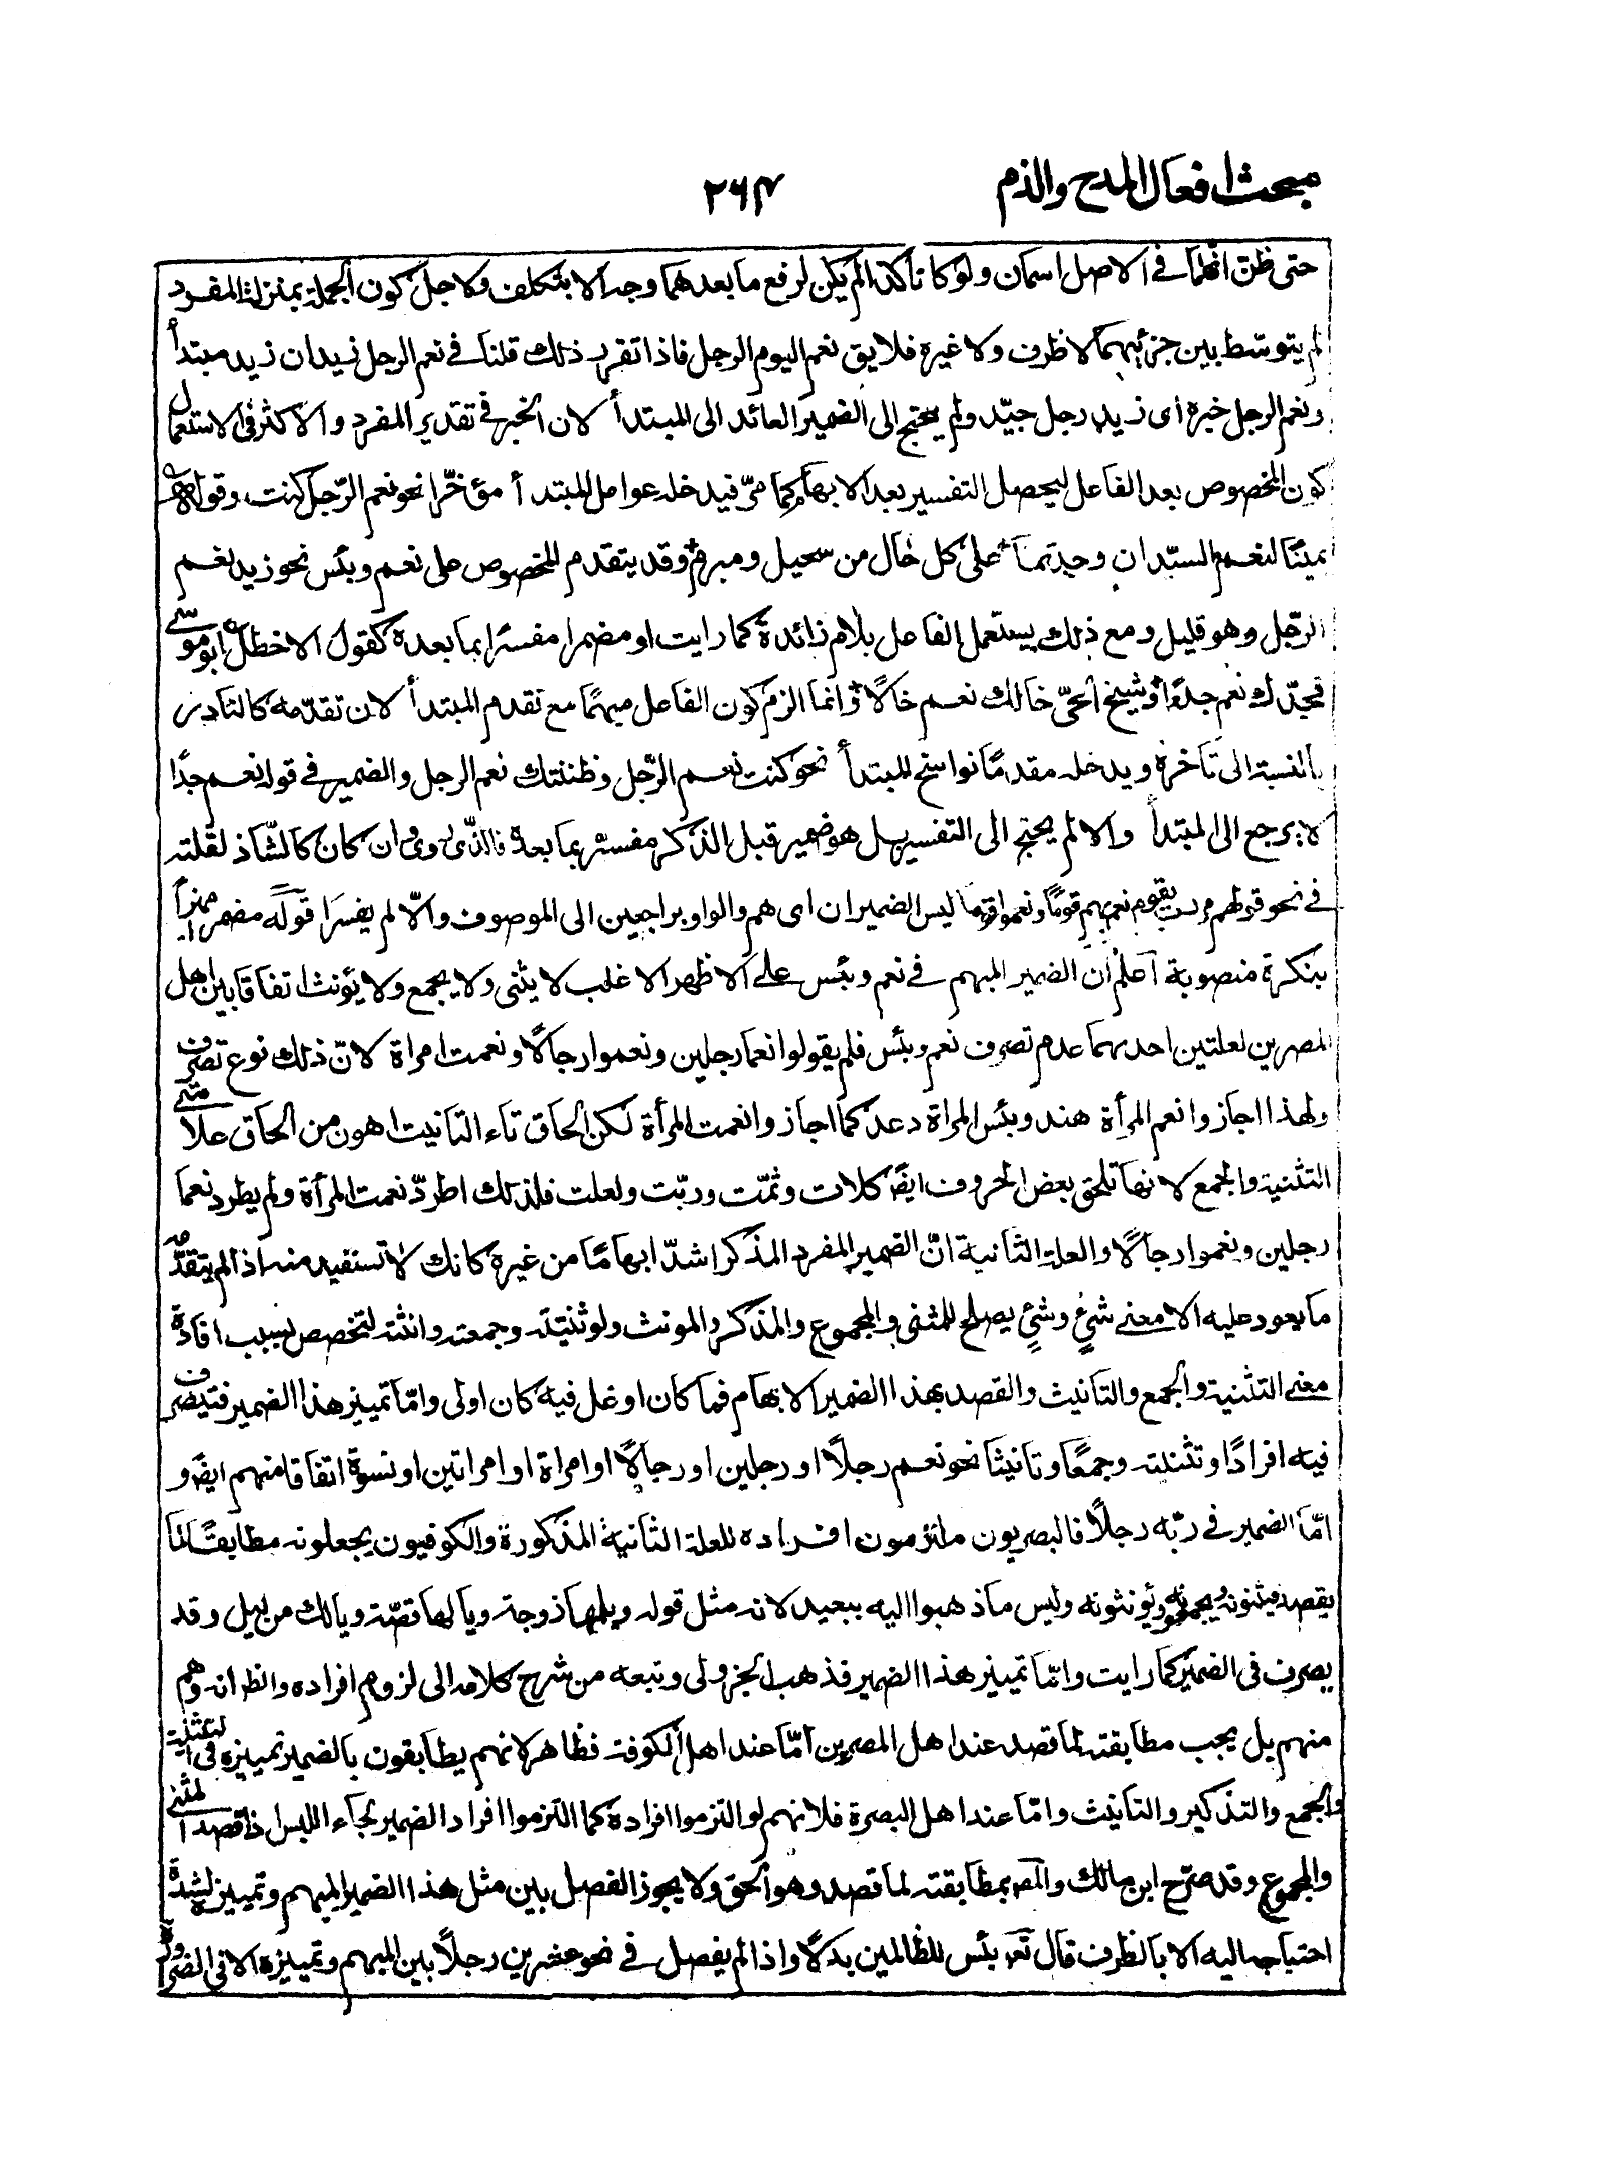 مبحث افعال المدح والذم
٢٦٤
حتى ظن انهما في الاصل اسمان ولو كانا كذا لم يكن لرفع ما بعدهما وجه الا بتكلف ولاجل كون الجملة بمنزلة المفرد
لم يتوسّط بين جزئيهما لا ظرف ولا غيره فلا يق نعم اليوم الرجل فاذا تقرر ذلك قلنا في نعم الرجل زيد ان زيد مبتدأ
ونعم الرجل خبره اى زيد رجل جيّد ولم يحتج الى الضمير العائد الى المبتدأ لان الخبر في تقدير المفرد والاكثر في الاستعمال
كون المخصوص بعد الفاعل ليحصل التفسير بعد الابهام كما مرّ فيدخله عوامل المبتدأ مؤخّرا نحو نعم الرّجل كنت وقوله
يمينًا لنعم السيّدان وجدتما على كل حال من سحيل ومبرم وقد يتقدم المخصوص على نعم وبئس نحو زيد نعم
الرّجل وهو قليل ومع ذلك يستعمل الفاعل بلام زائدة كما رايت او مضمرا مفسرًا بما بعده كقول الاخطل ابو موسى
فجدّك نعم جدًا وشيخ الحىّ خالك نعم خالًا وانما الزم كون الفاعل مبهمًا مع تقدم المبتدأ لان تقدّمه كالنادر
بالنسبة الى تأخره ويدخله مقدمًا نواسخ المبتدأ نحو كنت نعم الرّجل وظننتك نعم الرجل والضمير في قوله نعم جدًا
لا يرجع الى المبتدأ والا لم يحتج الى التفسير بل هو ضمير قبل الذكر مفسر بما بعده فالذى روى وان كان كالشّاذ لقلته
في نحو قولهم مررت بقوم نعم بهم قومًا ونعموا قوما ليس الضميران اى هم والواو براجعين الى الموصوف والّا لم يفسرا قوله مضمرا مميزاً
بنكرة منصوبة اعلم ان الضمير المبهم في نعم وبئس على الاظهر الاغلب لا يثنى ولا يجمع ولا يؤنث اتفاقا بين اهل
المصرين لعلتين احدهما عدم تصرف نعم وبئس فلم يقولوا نعما رجلين ونعموا رجالًا ونعمت امراة لانّ ذلك نوع تصرف
ولهذا اجازوا نعم المرأة هند وبئس المراة دعد كما اجازوا نعمت المرأة لكن الحاق تاء التانيث اهون من الحاق علامتى
التثنية والجمع لانها تلحق بعض الحروف ايضًا كلات وثمّت وربّت ولعلت فلذلك اطردّ نعمت المرأة ولم يطرد نعما
رجلين ونعموا رجالًا والعلة الثانية انّ الضمير المفرد المذكر اشدّ ابهامًا من غيره كانك لا تستفيد منه اذا لم يتقدّم
ما يعود عليه الا معنى شئ وشئ يصلح للمثنى والمجموع والمذكر والمونث ولو ثنيته وجمعته وانثته لتخصص بسبب افادة
معنى التثنية والجمع والتانيث والقصد بهذا الضمير الابهام فما كان اوغل فيه كان اولى وامّا تمييز هذا الضمير فتيصرف
فيه افرادًا وتثنية وجمعًا وتانيثا نحو نعم رجلًا او رجلين او رجالًا او امراة او امراتين او نسوة اتفاقا منهم ايضًا و
امّا الضمير في ربّه رجلًا فالبصريون ملتزمون افراده للعلة الثانية المذكورة والكوفيون يجعلونه مطابقًا لما
يقصد فيثنونه ويجمعونه ويؤنثونه وليس ما ذهبوا اليه ببعيد لانه مثل قوله ويلمها زوجة ويا لها قصّة ويالك من ليل وقد
يصرف في الضمير كما رايت وامّا تمييز هذا الضمير فذهب الجزولى وتبعه من شرح كلامه الى لزوم افراده والظ انه وهم
منهم بل يجب مطابقته لما قصد عند اهل المصرين امّا عند اهل الكوفة فظاهر لانهم يطابقون بالضمير تمييزه في التثنية
والجمع والتذكير والتانيث وامّا عند اهل البصرة فلانهم لو التزموا افراده كما التزموا افراد الضمير لجاء اللبس اذا قصد المثنى
والمجموع وقد صرّح ابن مالك والمص بمطابقته لما قصد وهو الحق ولا يجوز الفصل بين مثل هذا الضمير المبهم وتمييزه لشدة
احتياجه اليه الا بالظرف قال تعه بئس للظالمين بدلًا واذا لم يفصل في نحو عشرين رجلًا بين المبهم وتمييزه الا في الضرورة